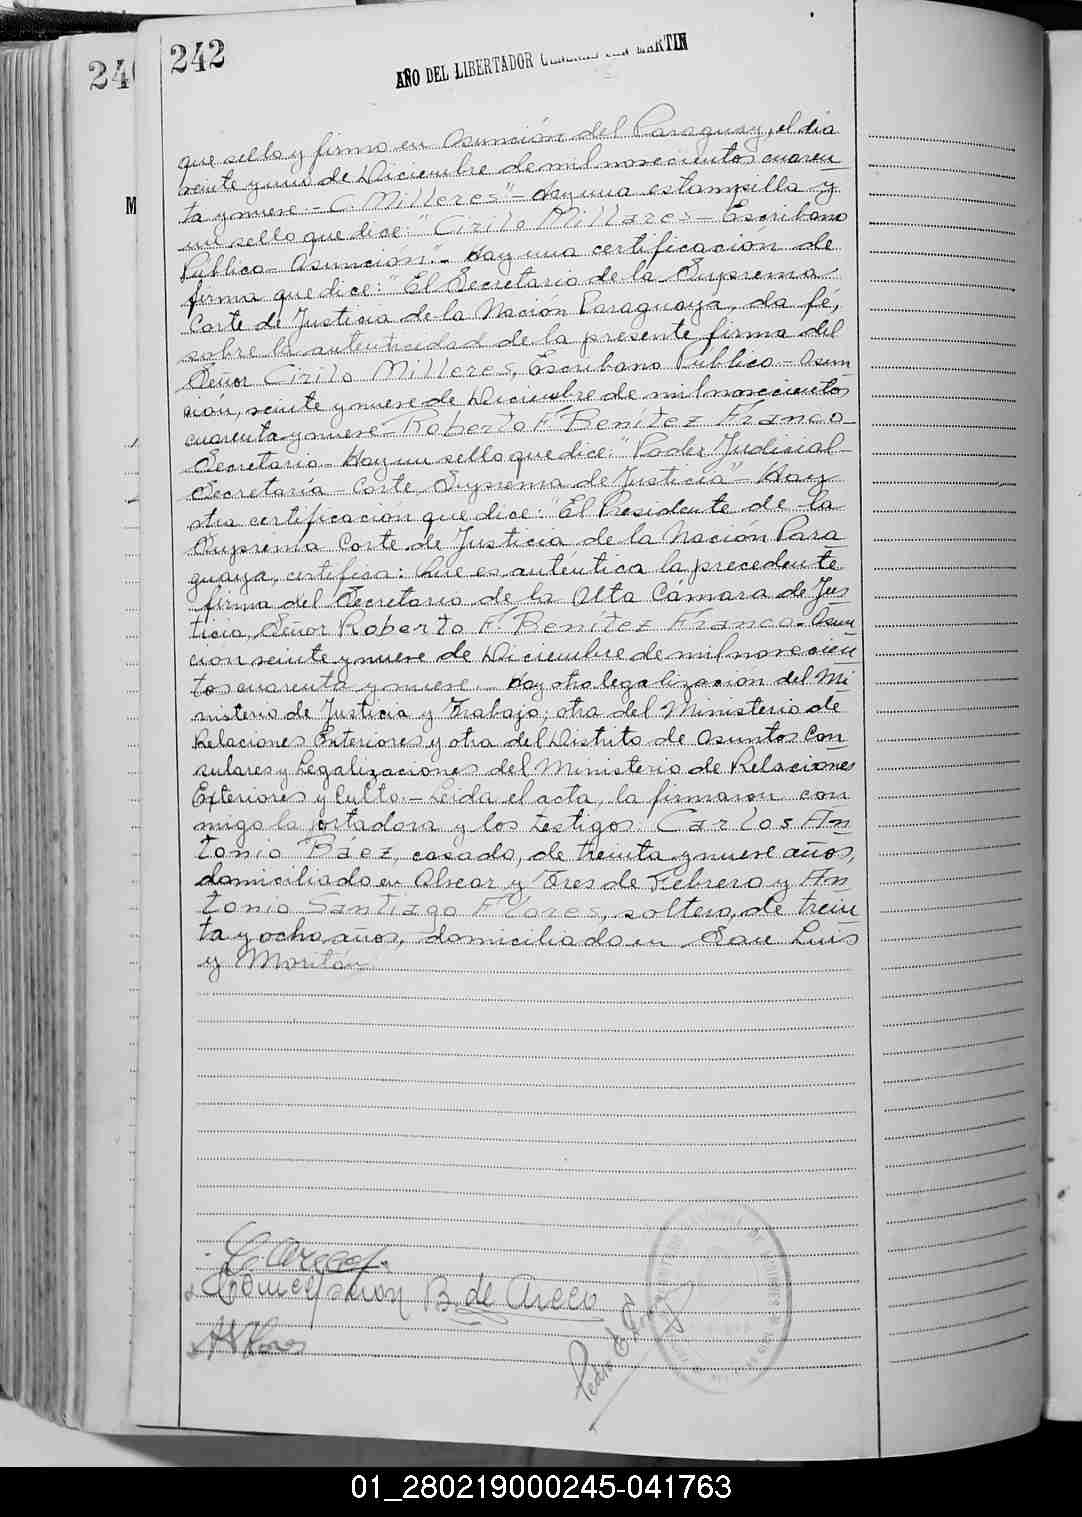 242
AÑO DEL LIBERTADOR GENERAL SAN MARTIN
que sello y firmo en Asunción del Paraguay, el dia
veinte y uno de Diciembre de mil novecientos cuaren
ta y nueve.- C. Milleres"- Hay una estampilla y
un sello que dice: "Cirilo Millares - Escribano
Público - Asunción".- Hay una certificación de
firma que dice: "El Secretario de la Suprema
Corte de Justicia de la Nación Paraguaya, da fé,
sobre la autenticidad de la presente firma del
Señor Cirilo Milleres, Escribano Público - Asun
ción, veinte y nueve de Diciembre de mil novecientos
cuarenta y nueve - Roberto F. Benitez Franco -
Secretario - Hay un sello que dice: "Poder Judicial -
Secretaría - Corte Suprema de Justicia" - Hay
otra certificación que dice: "El Presidente de la
Suprema Corte de Justicia de la Nación Para
guaya, certifica: Que es autentica la precedente
firma del Secretario de la Alta Cámara de Jus
ticia, Señor Roberto F. Benitez Franco - Asun
cion veinte y nueve de Diciembre de mil novecien
tos cuarenta y nueve.- Hay otra legalización del Mi
nisterio de Justicia y Trabajo; otra del Ministerio de
Relaciones Exteriores y otra del Distrito de Asuntos Con
sulares y Legalizaciones del Ministerio de Relaciones
Exteriores y Culto.- Leida el acta, la firmaron con
migo la portadora y los testigos: Carlos An
tonio Báez, casado, de treinta y nueve años,
domiciliado en Alvear y Tres de Febrero y An
tonio Santiago Flores, soltero, de trein
ta y ocho años, domiciliado en San Luis
y Moritán
Concepcion B. de Areco
Pedro E.
01_280219000245-041763